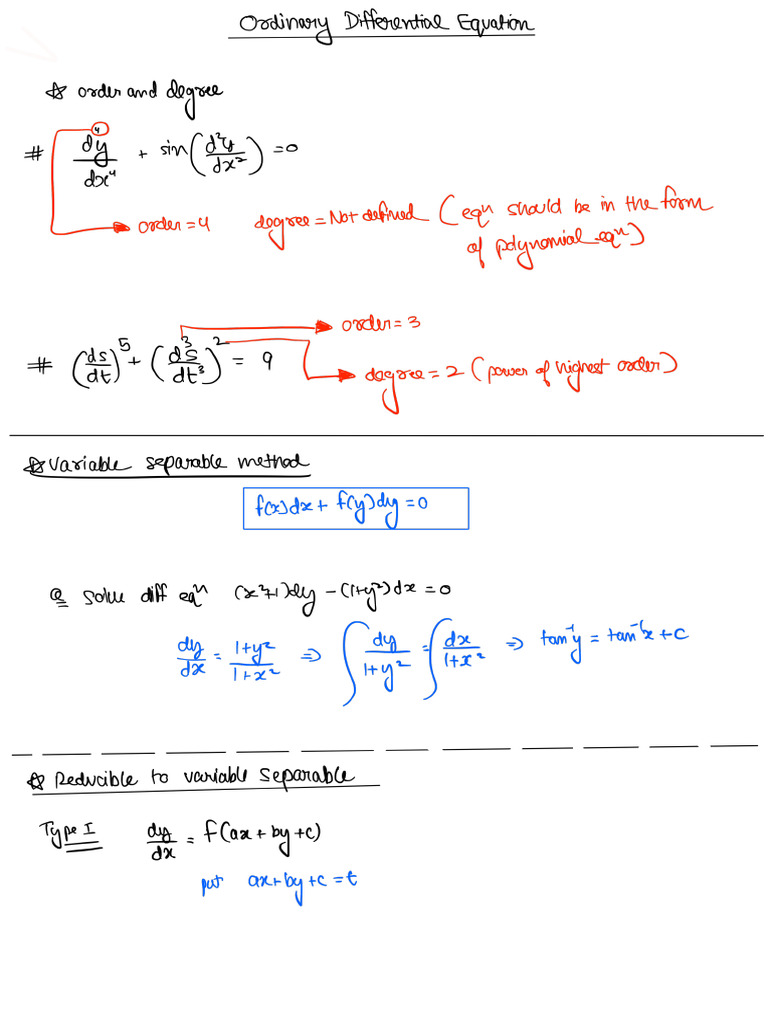 Ordinary Differential Equation
☆ order and degree
# d⁴y/dx⁴ + sin(d²y/dx²) = 0
order = 4 degree = Not defined (eqⁿ should be in the form
of polynomial eqⁿ)
order = 3
# (ds/dt)⁵ + (d³s/dt³)² = 9
degree = 2 (power of highest order)
☆ Variable separable method
f(x)dx + f(y)dy = 0
Q solve diff eqⁿ (x²+1)dy - (1+y²)dx = 0
dy/dx = 1+y²/1+x² ⇒ ∫ dy/1+y² = ∫ dx/1+x² ⇒ tan⁻¹y = tan⁻¹x + c
☆ Reducible to variable separable
Type I dy/dx = f(ax + by + c)
put ax + by + c = t